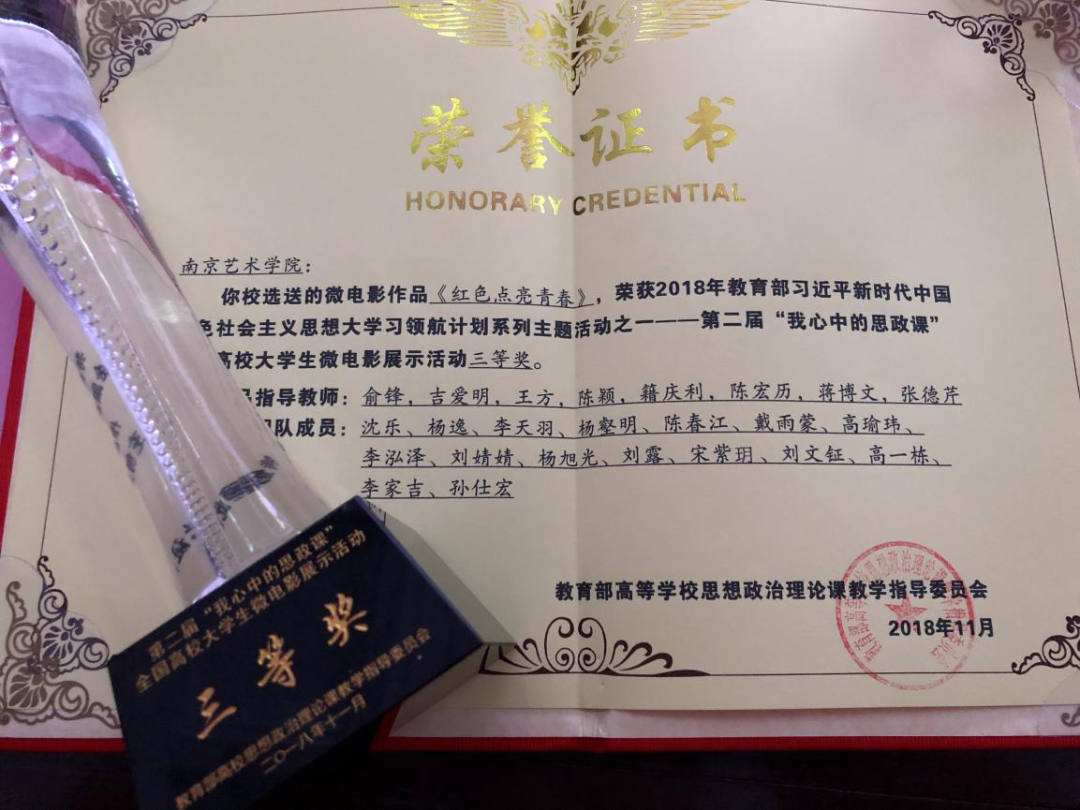 荣誉证书
HONORARY CREDENTIAL
南京艺术学院：
你校选送的微电影作品《红色点亮青春》，荣获2018年教育部习近平新时代中国
色社会主义思想大学习领航计划系列主题活动之一——第二届“我心中的思政课”
高校大学生微电影展示活动三等奖。
指导教师：俞锋，吉爱明，王方，陈颖，籍庆利，陈宏历，蒋博文，张德芹
队成员：沈乐、杨逸、李天羽、杨壑明、陈春江、戴雨蒙、高瑜玮、
李泓泽、刘婧婧、杨旭光、刘露、宋紫玥、刘文钲、高一栋、
李家吉、孙仕宏
教育部高等学校思想政治理论课教学指导委员会
2018年11月
第二届“我心中的思政课”
全国高校大学生微电影展示活动
三等奖
教育部高校思想政治理论课教学指导委员会
二〇一八年十一月